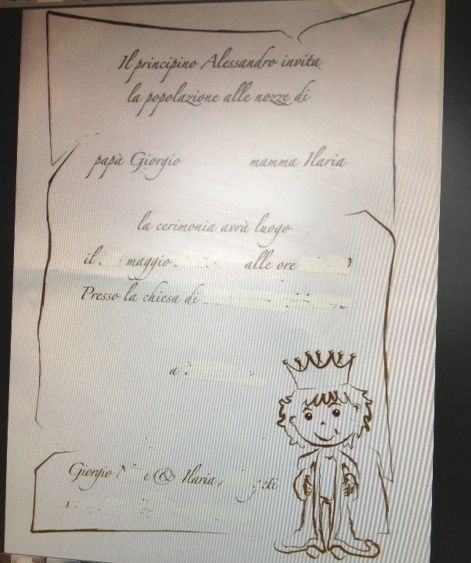 Il principino Alessandro invita
la popolazione alle nozze di
papà Giorgio mamma Ilaria
la cerimonia avrà luogo
il maggio alle ore
Presso la chiesa di
a
Giorgio & Ilaria